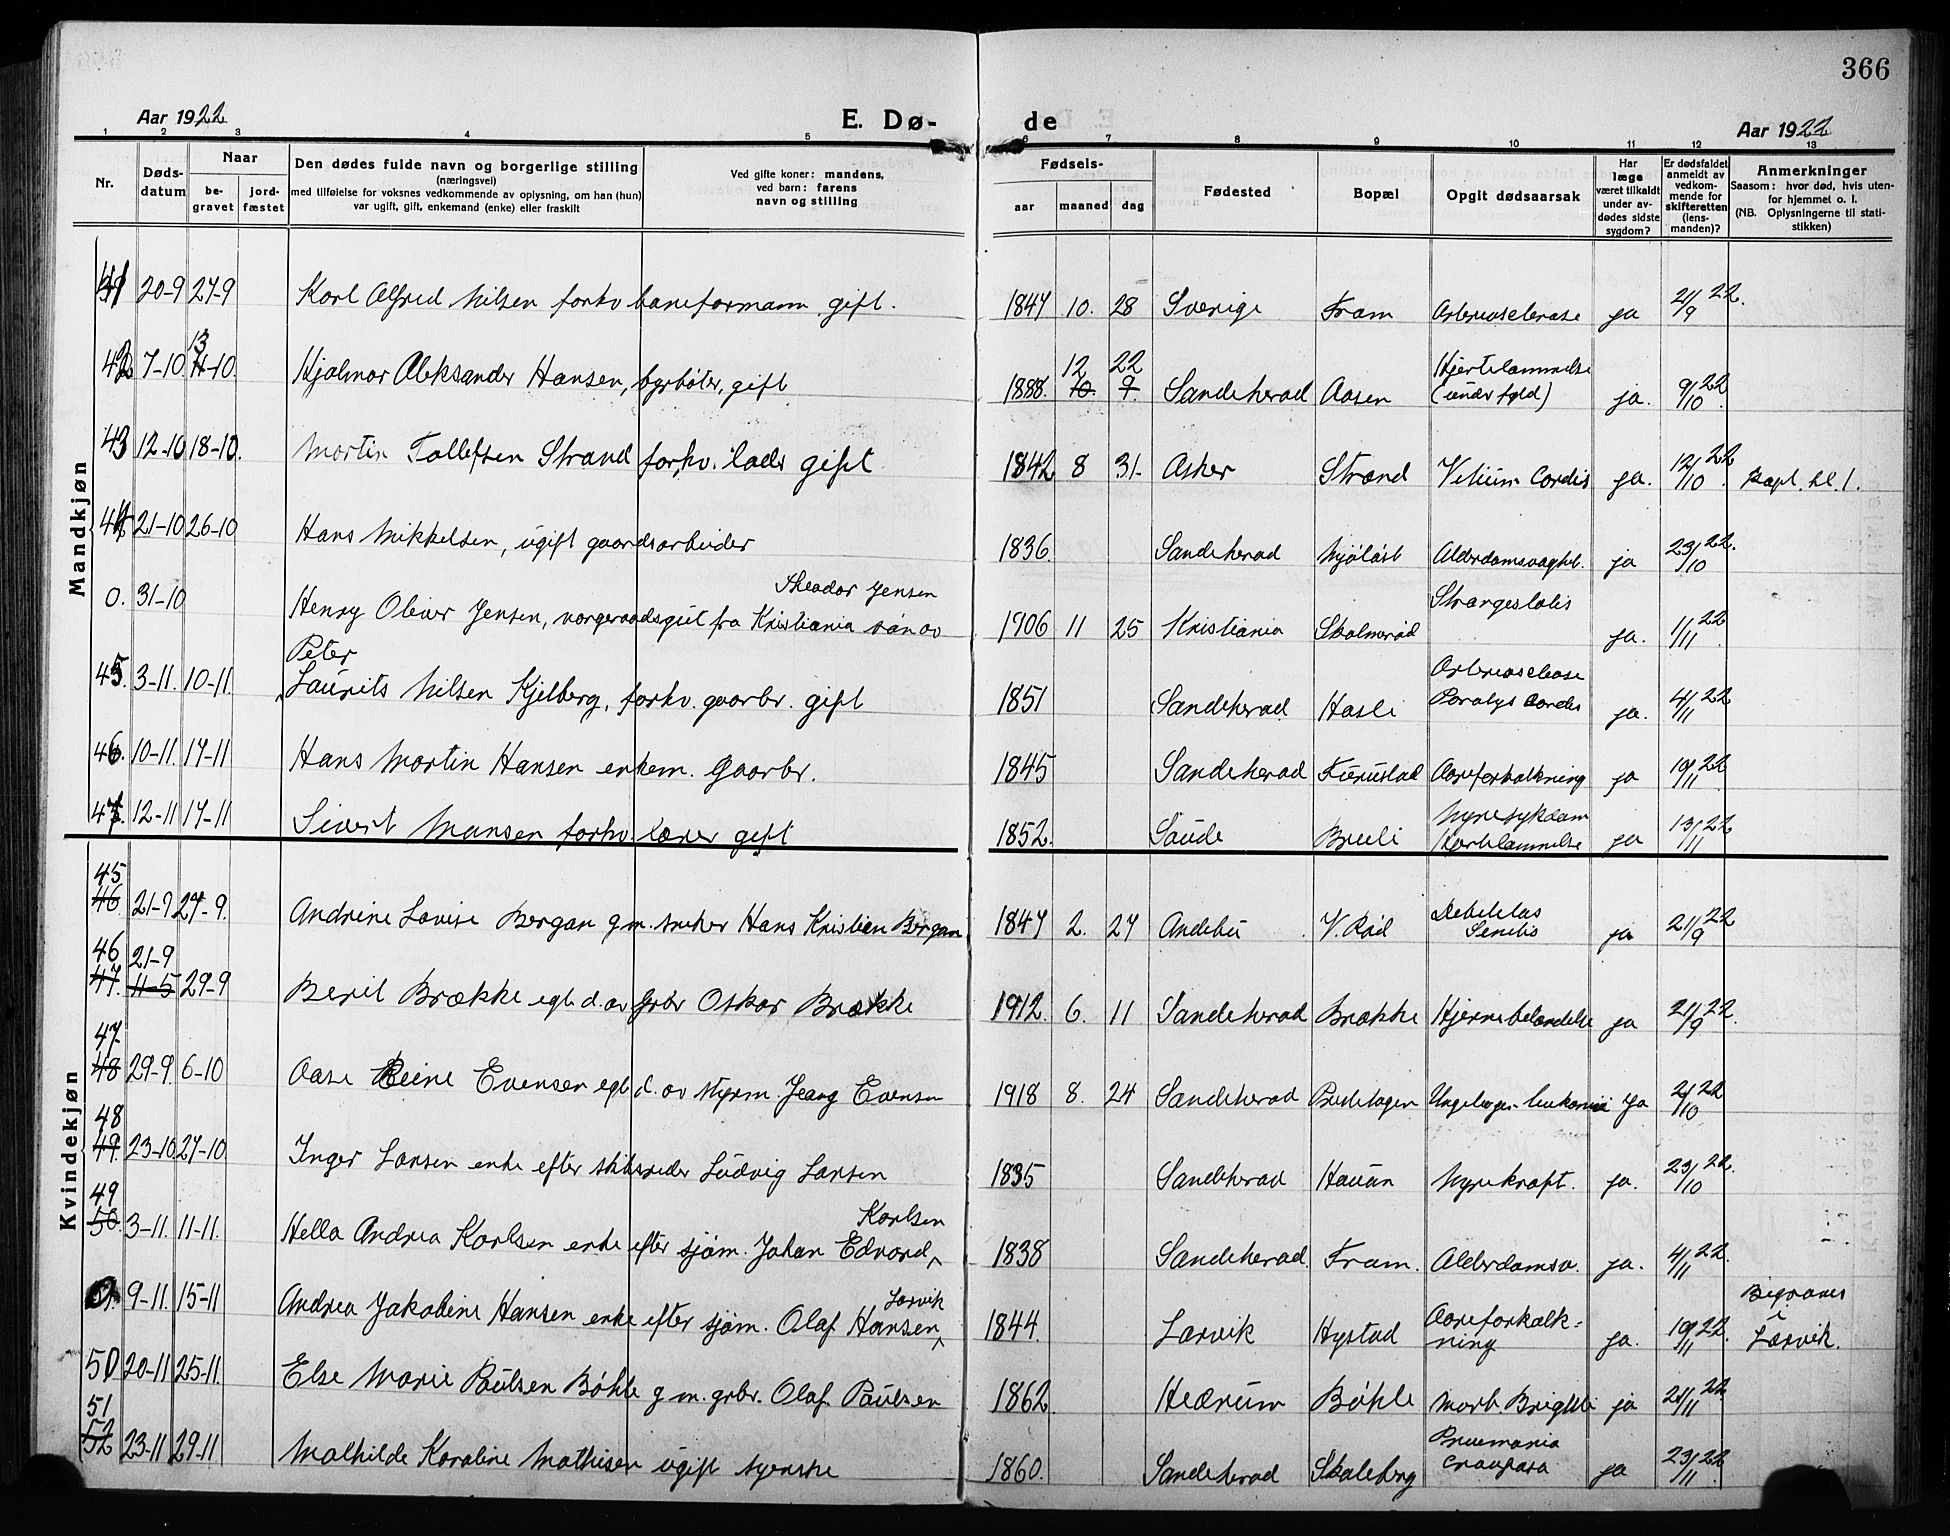 366
Aar 1922 E. Dø- de Aar 1922
1 2 3 4 5 6 7 8 9 10 11 12 13
Nr.
Døds-
datum
Naar
be-
gravet
jord-
fæstet
Den dødes fulde navn og borgerlige stilling
(næringsvei)
med tilføielse for voksnes vedkommende av oplysning, om han (hun)
var ugift, gift, enkemand (enke) eller fraskilt
Ved gifte koner: mandens,
ved barn: farens
navn og stilling
Fødsels-
aar maaned dag
Fødested
Bopæl
Opgit dødsaarsak
Har
læge
været tilkaldt
under av-
dødes sidste
sygdom?
Er dødsfaldet
anmeldt av
vedkom-
mende for
skifteretten
(lens-
manden)?
Anmerkninger
Saasom: hvor død, hvis uten-
for hjemmet o. l.
(NB. Oplysningerne til stati-
stikken)
Mandkjøn
41 20-9 27-9 Karl Alfred Nilsen forhv baneformann gift. 1847 10. 28 Sverige Fram Arterioselerose ja 21/9 22.
13
12 22 Hjertelammelse
42 7-10 11-10. Hjalmar Aleksander Hansen, fyrbøter, gift 1888. 10. 9. Sandeherad Aasen ja. 9/10 22
43 12-10 18-10. Martin Tollefsen Strand forhv. lods gift 1842 8 31- Asker Strand Vitium Cordis ja. 12/10 22. Kapt. kl. 1.
44 21-10 26-10 Hans Mikkelsen, ugift gaardsarbeider 1836. Sandeherad Alderdomsvaghet. ja 23/10 22.
Theodor Jensen
0. 31-10 Henry Oliver Jensen, vergeraadsgut fra Kristiania søn av 1906 11 25 Kristiania Skolmerød ja. 1/11 22.
Peter
Arterioselerose
45. 3-11. 10-11. Laurits Nilsen Kjelberg, forhv. gaarbr. gift 1851 Sandeherad Hasle Paralys Cordis ja. 4/11 22
46. 10-11. 17-11 Hans Martin Hansen enkem. Gaarbr. 1845 Sandeherad Furustad Aareforkalkning ja 10/11 22.
Nyresykdom
47. 12-11 17-11 Sivert Mansen forhv. lærer gift 1852. Saude Brecli Hjertelammelse ja 13/11 22
Kvindekjøn
45
46. 21-9 27-9. Andrine Lovise Bergan g m. sneker Hans Kristian Bergan 1847 2. 27 Andebu V. Rød Debilitas Senilis ja 21/9 22
46 21-9
47. 11-5 29-9 Beril Brække egt. d. av Grbr Oskar Brække 1912. 6. 11 Sandeherad Brække Hjernebetændelse ja 21/9 22.
47.
48 29-9. 6-10 Aase Reine Evensen egt d. av styrm. Jeang Evensen 1918 8. 24 Sandeherad ja 2/10 22
48
49. 23-10. 27-10. Inger Larsen enke efter skibsreder Ludvig Larsen 1835 Sandeherad Hauan Nyrekræft. ja. 23/10 22.
49 Karlsen
50. 3-11. 11-11. Hella Andrea Karlsen enke efter sjøm. Johan Edvard 1838 Sandeherad. Fram. Alderdomsv. ja. 4/11 22.
Larvik Begraves
0. 9-11. 15-11 Andrea Jakobine Hansen enke efter sjøm. Olaf Hansen 1844. Larvik Hystad Aareforkalk-
ning ja. 10/11 22. i Larvik.
50 20-11 25-11. Else Marie Paulsen Bøhle g m. grbr. Olaf Paulsen 1862 Hedrum Bøhle Morb. Brightii ja 21/11 22
51
52 23-11 29-11 Mathilde Karoline Mathisen ugift syerske 1860. Sandeherad Skaleberg Pneumonia crouposa ja 23/11 22.